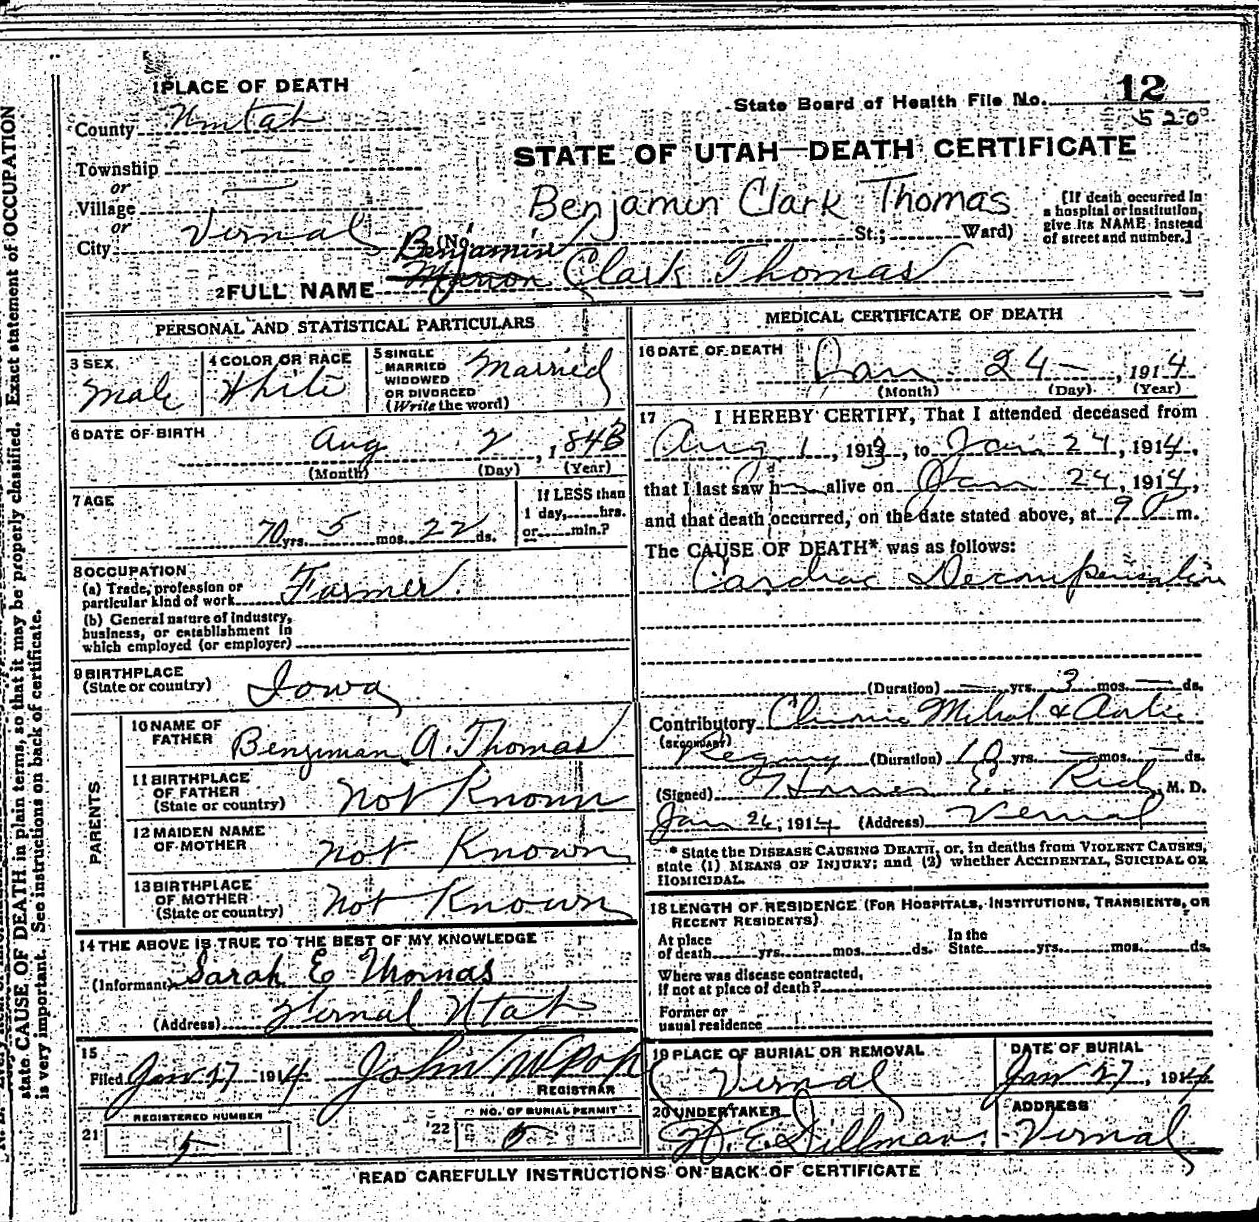 state CAUSE OF DEATH in plain terms, so that it may be properly classified. Exact statement of OCCUPATION
is very important. See instructions on back of certificate.
1 PLACE OF DEATH
12
State Board of Health File No.
520
County Uintah
STATE OF UTAH—DEATH CERTIFICATE
Township —
or
Village —
or
City Vernal
Benjamin Clark Thomas
(No. St.; Ward)
[If death occurred in
a hospital or institution,
give its NAME instead
of street and number.]
Benjamin
2 FULL NAME Myron Clark Thomas
PERSONAL AND STATISTICAL PARTICULARS
3 SEX
Male
4 COLOR OR RACE
White
5 SINGLE
MARRIED
WIDOWED
OR DIVORCED
(Write the word)
Married
6 DATE OF BIRTH
Aug 2, 1843
(Month) (Day) (Year)
7 AGE
70 yrs. 5 mos. 22 ds.
If LESS than
1 day, hrs.
or min.?
8 OCCUPATION
(a) Trade, profession or
particular kind of work Farmer
(b) General nature of industry,
business, or establishment in
which employed (or employer)
9 BIRTHPLACE
(State or country) Iowa
PARENTS
10 NAME OF
FATHER Benjiman A. Thomas
11 BIRTHPLACE
OF FATHER
(State or country) not Known
12 MAIDEN NAME
OF MOTHER not Known
13 BIRTHPLACE
OF MOTHER
(State or country) not Known
14 THE ABOVE IS TRUE TO THE BEST OF MY KNOWLEDGE
(Informant) Sarah E Thomas
(Address) Vernal Utah
15
Filed Jan 27 1914 John W Pope
REGISTRAR
REGISTERED NUMBER
21 5
NO. OF BURIAL PERMIT
22 5
MEDICAL CERTIFICATE OF DEATH
16 DATE OF DEATH
Jan 24 —, 1914
(Month) (Day) (Year)
17 I HEREBY CERTIFY, That I attended deceased from
Aug 1, 1913, to Jan. 24, 1914,
that I last saw h alive on Jan 24, 1914,
and that death occurred, on the date stated above, at 9 P m.
The CAUSE OF DEATH* was as follows:
Cardiac Decompensation
(Duration) — yrs. 3 mos. — ds.
Contributory Chronic Mitral & Aortic
(SECONDARY)
Regurg (Duration) 10 yrs. — mos. — ds.
(Signed) E. Rich, M. D.
Jan 26, 1914 (Address) Vernal
* State the DISEASE CAUSING DEATH, or, in deaths from VIOLENT CAUSES,
state (1) MEANS OF INJURY; and (2) whether ACCIDENTAL, SUICIDAL OR
HOMICIDAL.
18 LENGTH OF RESIDENCE (FOR HOSPITALS, INSTITUTIONS, TRANSIENTS, OR
RECENT RESIDENTS)
At place
of death yrs. mos. ds.
In the
State yrs. mos. ds.
Where was disease contracted,
if not at place of death?
Former or
usual residence
19 PLACE OF BURIAL OR REMOVAL
Vernal
DATE OF BURIAL
Jan 27, 1914
20 UNDERTAKER
W. E. Dillman
ADDRESS
Vernal
READ CAREFULLY INSTRUCTIONS ON BACK OF CERTIFICATE